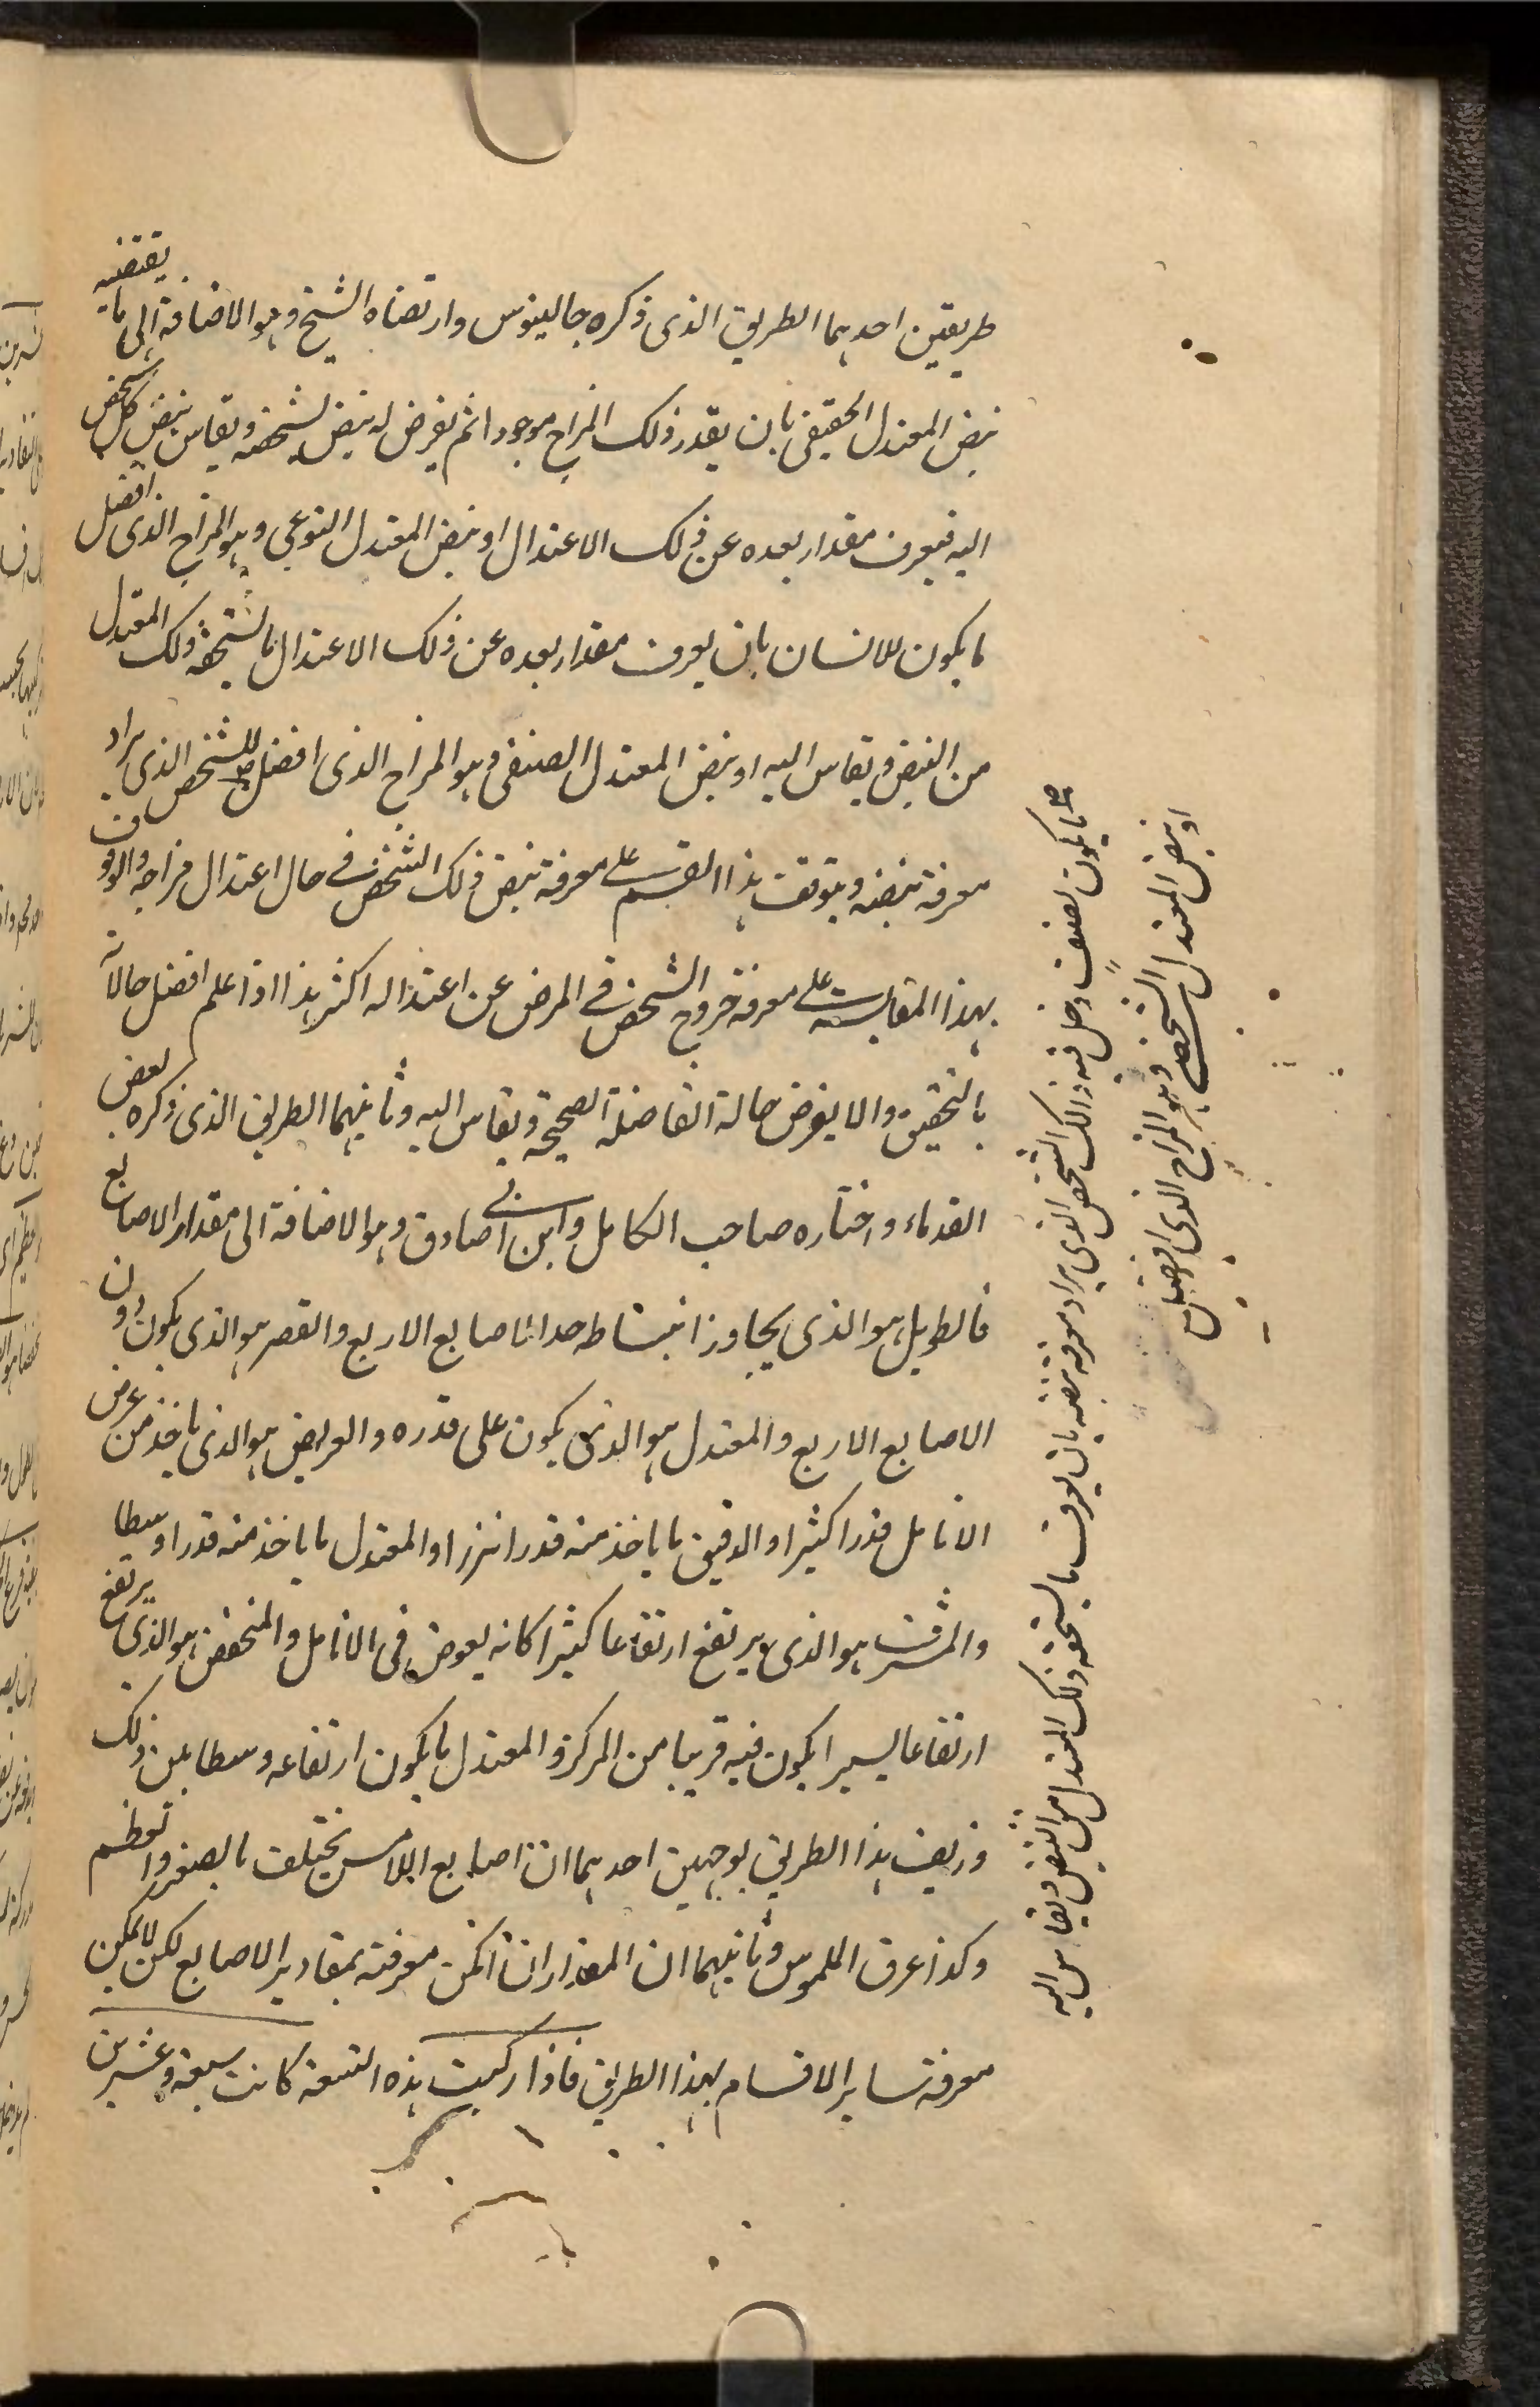 طريقين احدهما الطريق الذى ذكره جالينوس وارتضاه الشيخ وهو الاضافة الى ما يقتضيه
نبض المعتدل الحقيقى بان يقدر ذلك المزاج موجودا ثم يفرض له نبض يستحقه ويقاس نبض كل شخص
اليه فيعرف مقدار بعده عن ذلك الاعتدال او نبض المعتدل النوعى وهو المزاج الذى افضل
ما يكون للانسان بان يعرف مقدار بعده عن ذلك الاعتدال ما يستحقه ذلك المعتدل
من النبض ويقاس اليه او نبض المعتدل الصنفى وهو المزاج الذى افضل للشخص الذى يراد
معرفة نبضه ويتوقف هذا القسم على معرفة نبض ذلك الشخص فى حال اعتدال مزاجه والوقوف
بهذا المقايسة على معرفة خروج الشخص فى المرض عن اعتداله اكثر هذا اذا علم افضل حالاته
بالتحقيق والا يفرض حالة الفاضلة الصحيحة ويقاس اليه وثانيهما الطريق الذى ذكره بعض
القدماء واختاره صاحب الكامل وابن ابى صادق وهو الاضافة الى مقدار الاصابع
فالطويل هو الذى يجاوز انبساطه حد الاصابع الاربع والقصر هو الذى يكون دون
الاصابع الاربع والمعتدل هو الذى يكون على قدره والعريض هو الذى ياخذ من عرض
الانامل قدرا كثيرا والدقيق ما ياخذ منه قدرا نزرا والمعتدل ما ياخذ منه قدرا وسطا
والمشرف هو الذى يرتفع ارتفاعا كثيرا كانه يعوض فى الانامل والمنخفض هو الذى يرتفع
ارتفاعا يسيرا يكون فيه قريبا من المركز والمعتدل ما يكون ارتفاعه وسطا بين ذلك
وزيف هذا الطريق بوجهين احدهما ان اصابع اللامس يختلف بالصغر والعظم
وكذا عرق الملموس وثانيهما ان المقدار ان امكن معرفته بمقادير الاصابع لكن لا يمكن
معرفة ساير الاقسام بهذا الطريق فاذا ركبت هذه التسعة كانت سبعة وعشرين
ما يكون لصنف دخل فيه ذالك الشخص الذى يراد معرفة نبضه بان يعرف ما يستحقه ذلك المعتدل من النبض ويقاس اليه
او نبض المعتدل الشخصى وهو المزاج الذى افضل